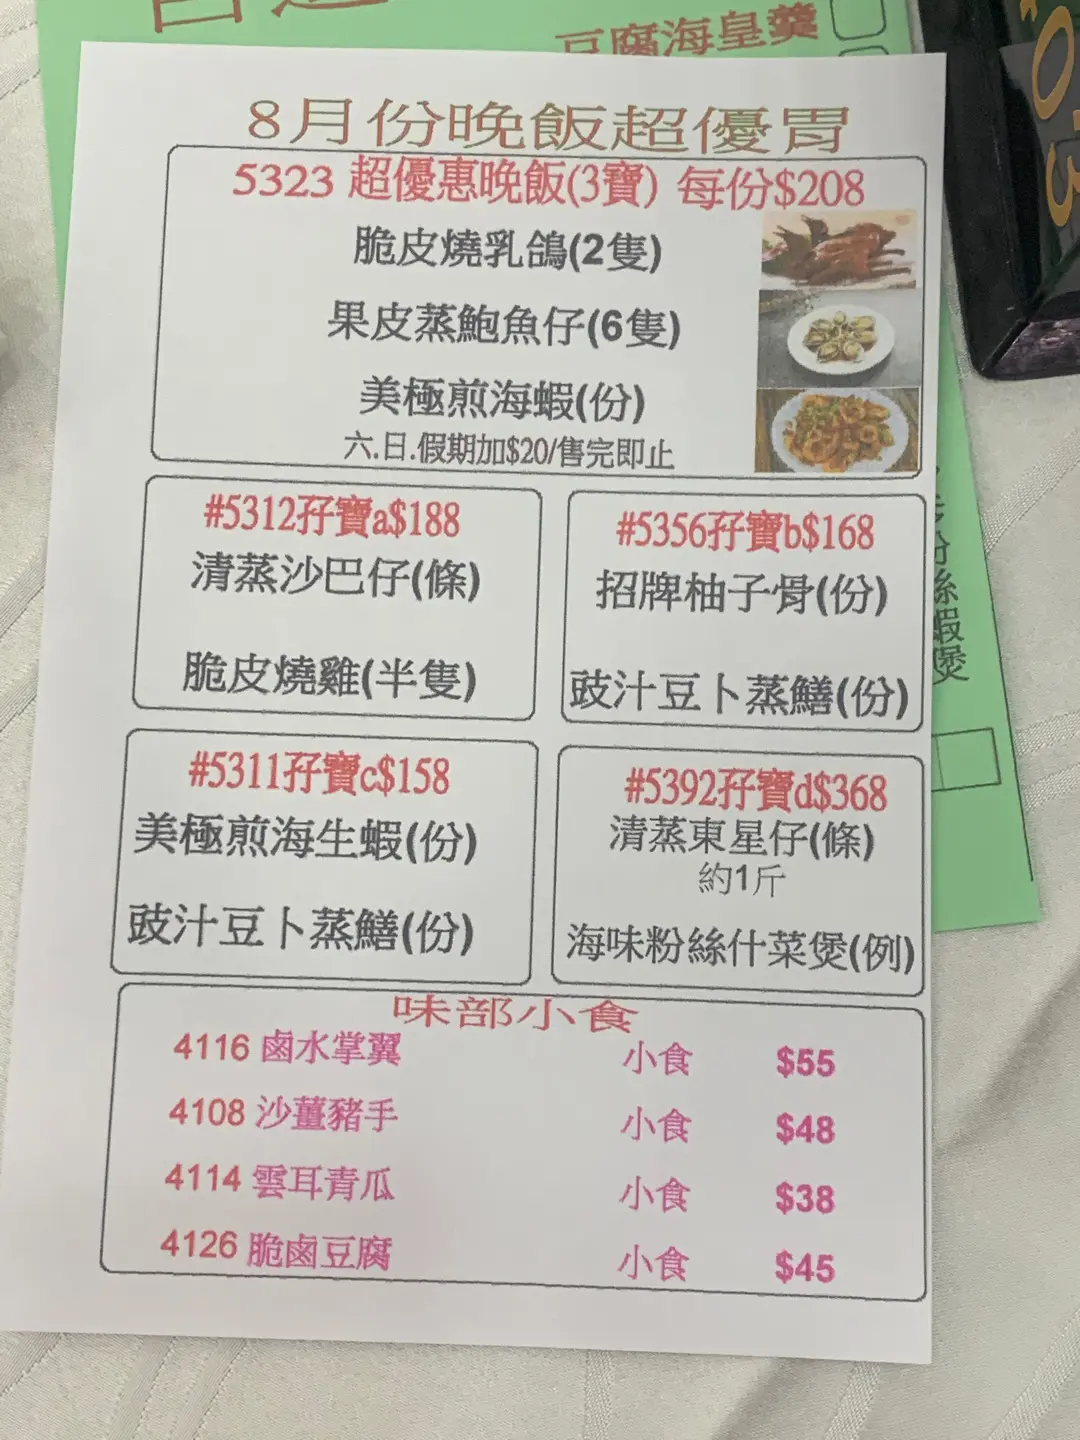 豆腐海皇羹
8月份晚飯超優胃
5323 超優惠晚飯(3寶) 每份$208
脆皮燒乳鴿(2隻)
果皮蒸鮑魚仔(6隻)
美極煎海蝦(份)
六.日.假期加$20/售完即止
#5312孖寶a$188
清蒸沙巴仔(條)
脆皮燒雞(半隻)
#5356孖寶b$168
招牌柚子骨(份)
豉汁豆卜蒸鱔(份)
#5311孖寶c$158
美極煎海生蝦(份)
豉汁豆卜蒸鱔(份)
#5392孖寶d$368
清蒸東星仔(條)
約1斤
海味粉絲什菜煲(例)
味部小食
4116 鹵水掌翼 小食 $55
4108 沙薑豬手 小食 $48
4114 雲耳青瓜 小食 $38
4126 脆鹵豆腐 小食 $45
粉絲蝦煲